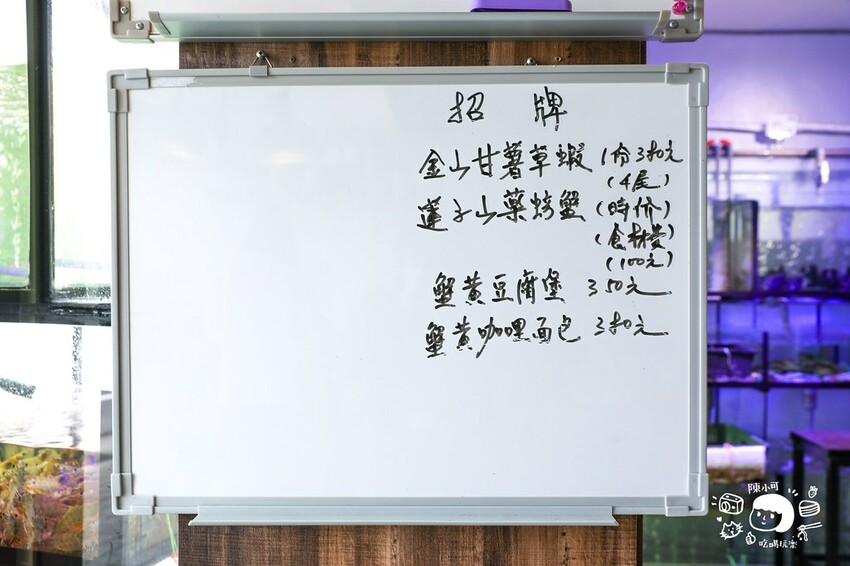 招 牌
金山甘薯草蝦 1份380元
(4尾)
蓮子山藥螃蟹 (時价)
(食材費)
(100元)
蟹黃豆腐堡 350元
蟹黃咖哩面包 380元
陳小可
吃喝玩樂